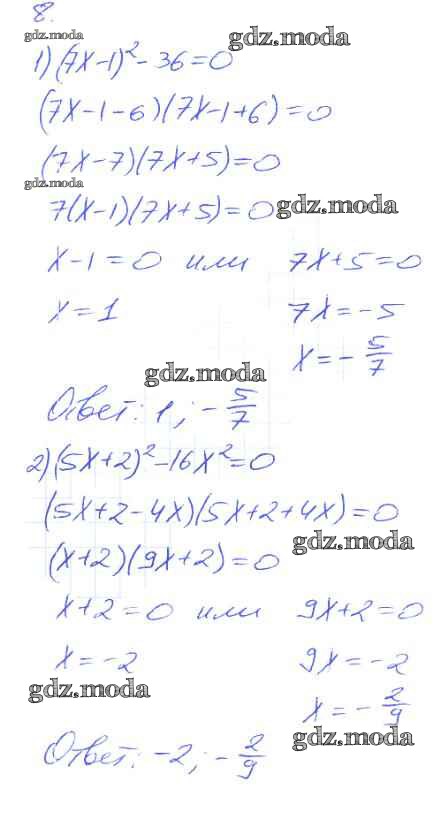 8.
gdz.moda
gdz.moda
1) (7x-1)² - 36 = 0
(7x-1-6)(7x-1+6) = 0
(7x-7)(7x+5) = 0
gdz.moda
7(x-1)(7x+5) = 0 gdz.moda
x-1 = 0 или 7x+5 = 0
x = 1 7x = -5
x = -5/7
gdz.moda
Ответ: 1; -5/7
2) (5x+2)² - 16x² = 0
(5x+2-4x)(5x+2+4x) = 0
gdz.moda
(x+2)(9x+2) = 0
x+2 = 0 или 9x+2 = 0
x = -2 9x = -2
gdz.moda
x = -2/9
gdz.moda
Ответ: -2; -2/9